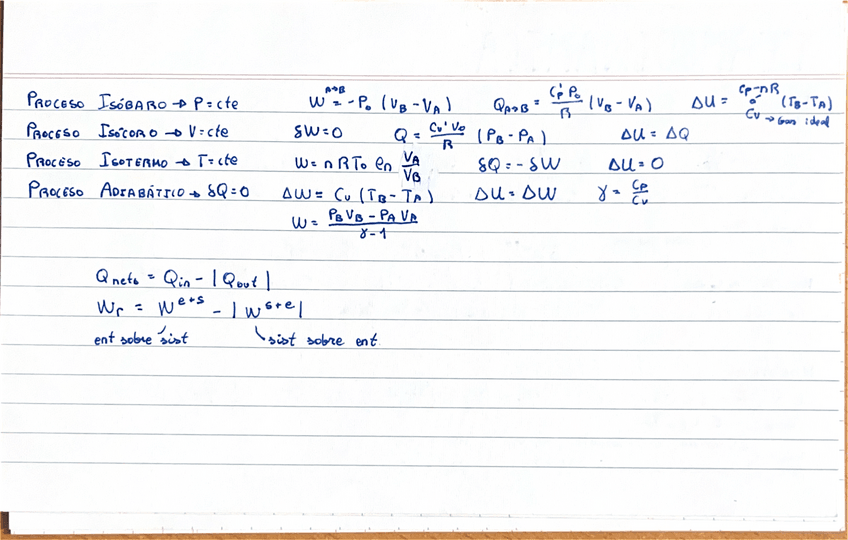 PROCESO ISÓBARO → P=cte W^{A→B} = -P₀ (V_B - V_A) Q_{A→B} = \frac{C_p' P₀}{R} (V_B - V_A) ΔU = C_p-nR ó C_V → Gas ideal (T_B - T_A)
PROCESO ISÓCORO → V=cte δW=0 Q = \frac{C_V' V₀}{R} (P_B - P_A) ΔU = ΔQ
PROCESO ISOTERMO → T=cte W = n R T₀ ln \frac{V_A}{V_B} δQ = -δW ΔU = 0
PROCESO ADIABÁTICO → δQ=0 ΔW = C_V (T_B - T_A) ΔU = ΔW γ = \frac{C_P}{C_V}
W = \frac{P_B V_B - P_A V_A}{γ-1}
Q_{neto} = Q_{in} - |Q_{out}|
W_r = W^{e→s} - |W^{s→e}|
ent sobre sist sist sobre ent.